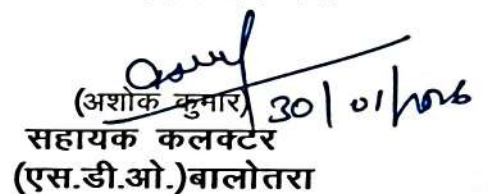 (अशोक कुमार) 30/01/2026
सहायक कलक्टर
(एस.डी.ओ.)बालोतरा